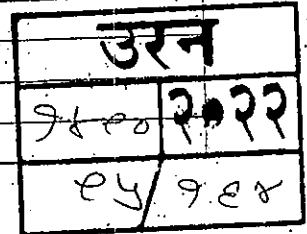 उरन
१४९० २०२२
९५/१६४